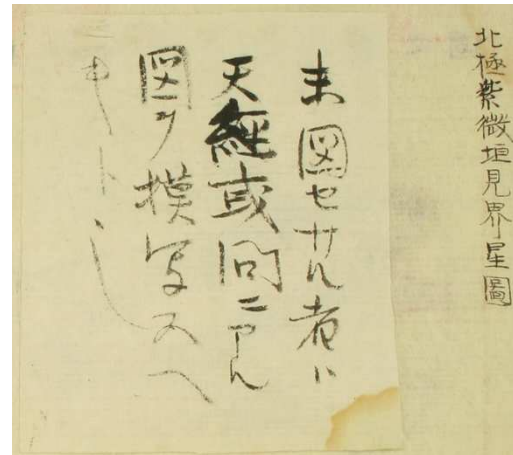 北極紫微垣見界星圖
未図セサル者ハ
天經或問ニアル
図ヲ摸写スヘ